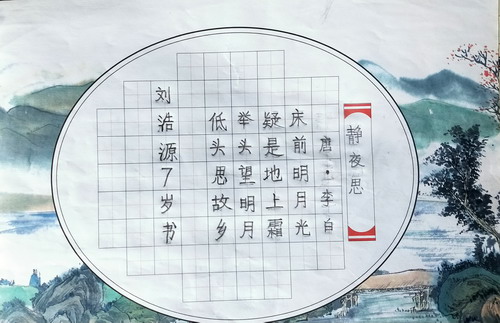 静夜思
唐·李白
床前明月光
疑是地上霜
举头望明月
低头思故乡
刘浩源7岁书